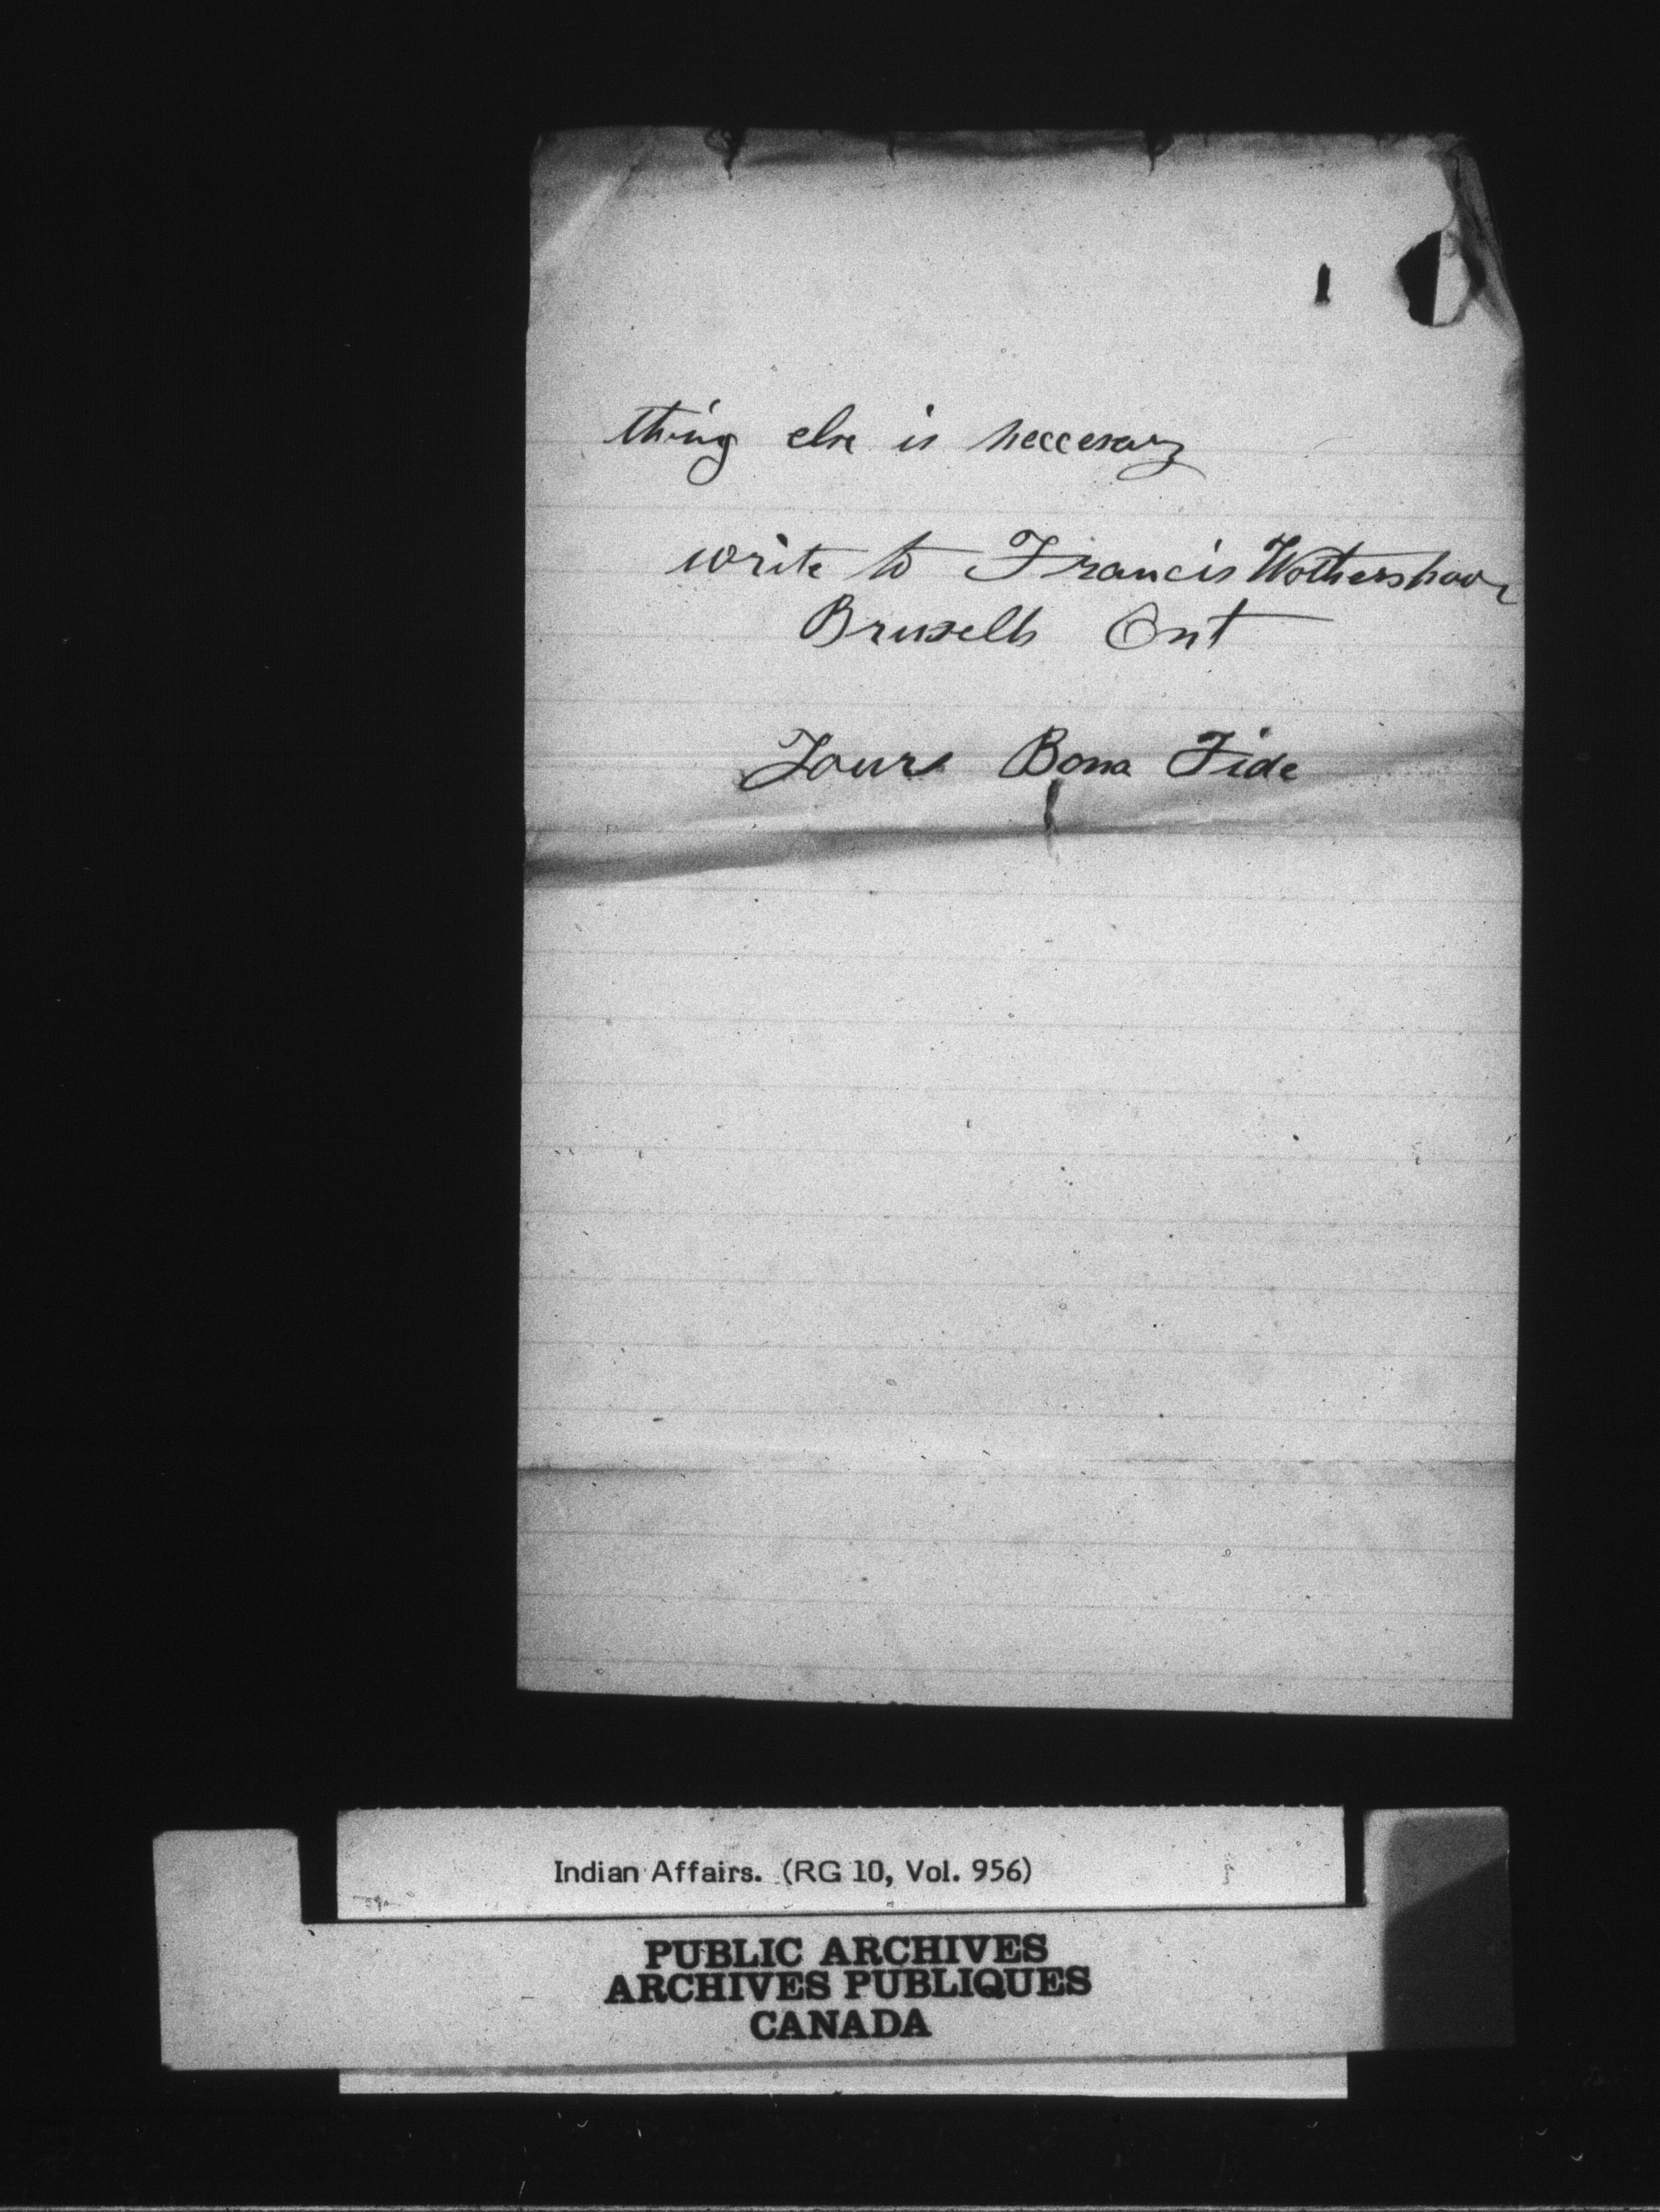 thing else is neccesary
write to Francis Wotherspoon
Brussells Ont
Yours Bona Fide
Indian Affairs. (RG 10, Vol. 956)
PUBLIC ARCHIVES
ARCHIVES PUBLIQUES
CANADA